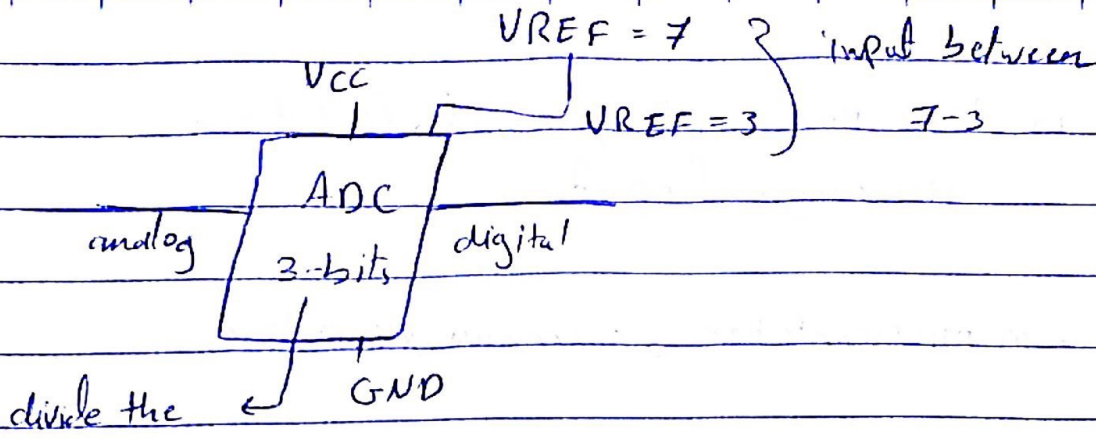 VREF = 7
input between
VCC
VREF = 3
7-3
ADC
analog
digital
3-bits
GND
divide the